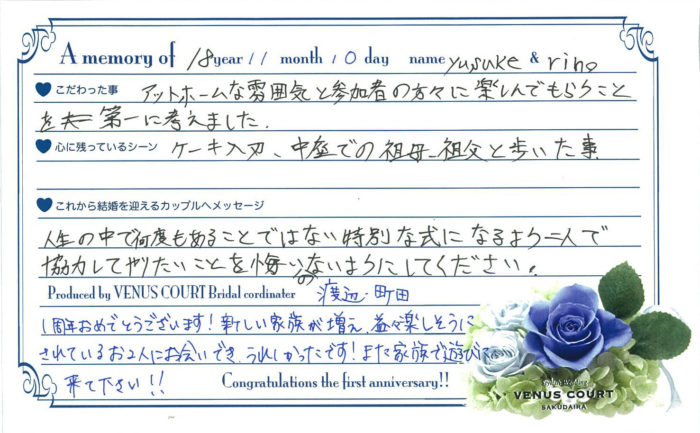 A memory of 18 year 11 month 10 day name yusuke & rino
こだわった事 アットホームな雰囲気と参加者の方々に楽しんでもらうこと
を第一に考えました。
心に残っているシーン ケーキ入刀、中座での祖母、祖父と歩いた事
これから結婚を迎えるカップルへメッセージ
人生の中で何度もあることではない特別な式になるよう二人で
協力してやりたいことを悔いのないようにしてください。
Produced by VENUS COURT Bridal cordinater 渡辺 町田
1周年おめでとうございます!新しい家族が増え、益々楽しそうに
されているお2人にお会いでき、うれしかったです!また家族で遊びに
来て下さい!!
Congratulations the first anniversary!!
VENUS COURT
SAKUDAIRA